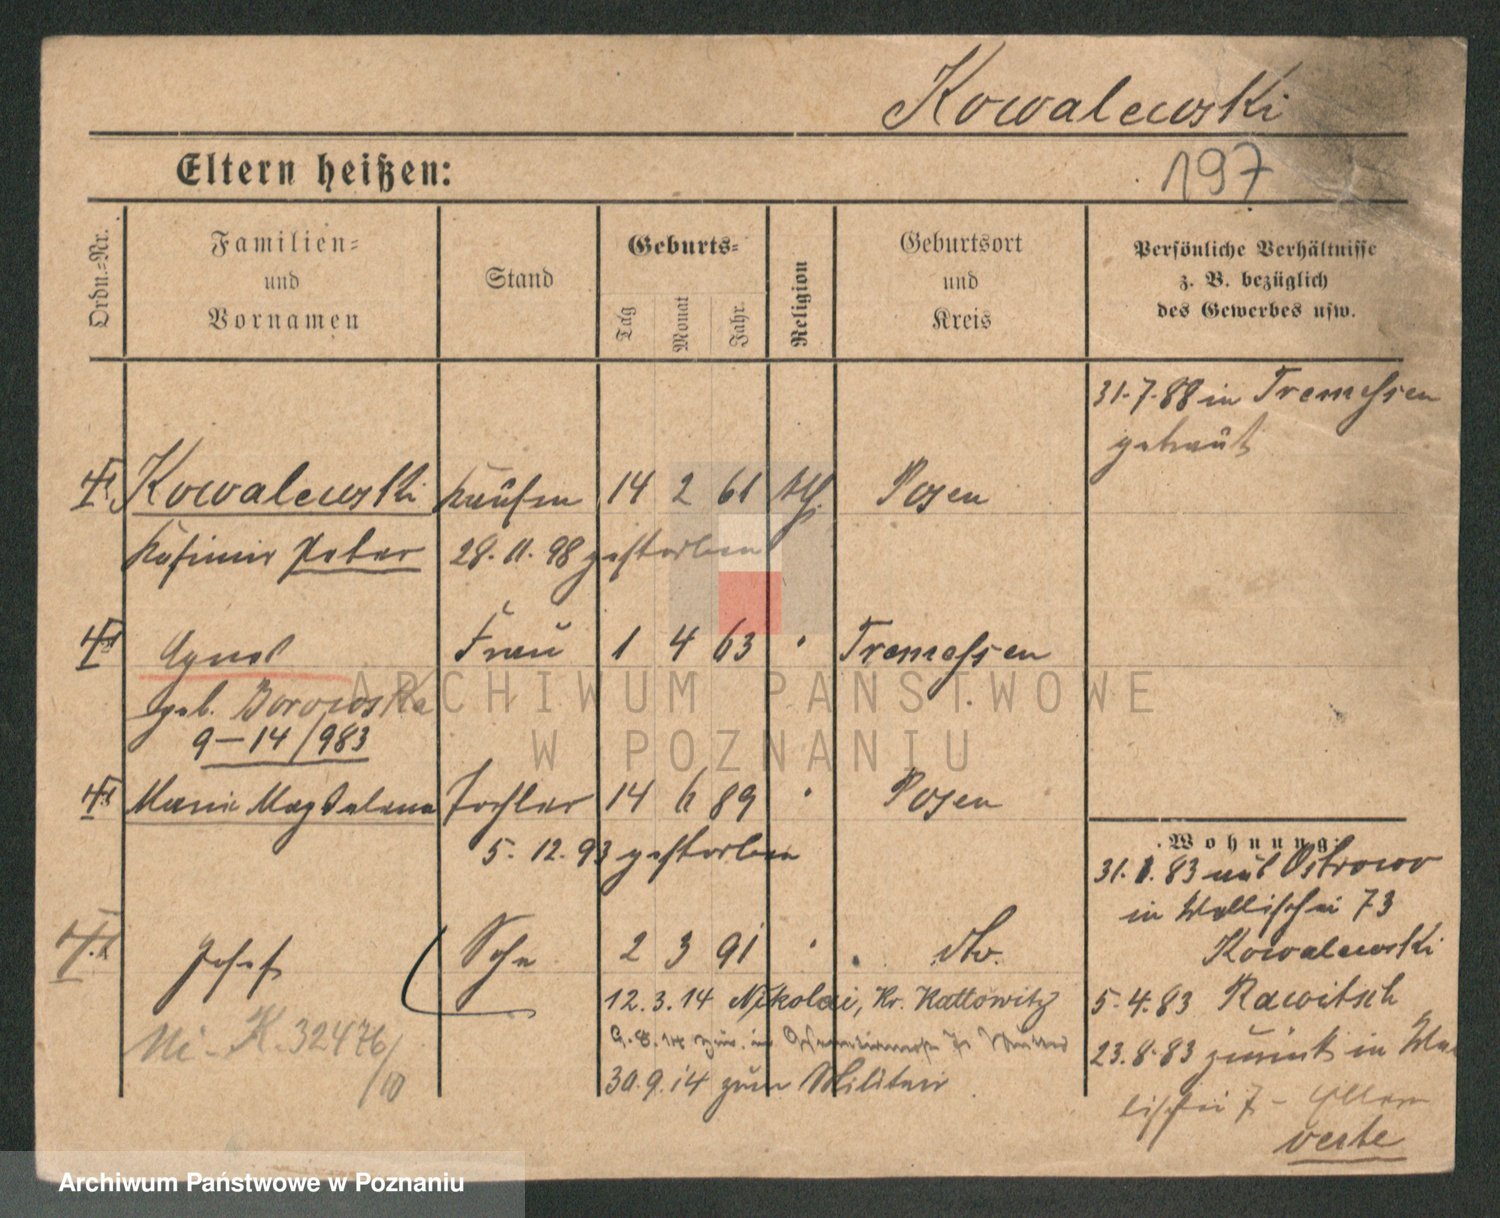 Kowalewski
Eltern heißen:
197
Ordn.=Nr.
Familien=
und
Vornamen
Stand
Geburts=
Tag
Monat
Jahr.
Religion
Geburtsort
und
Kreis
Persönliche Verhältnisse
z. B. bezüglich
des Gewerbes usw.
31.7.88 in Tremessen
getraut
Kowalewski Kaufm 14 2 61 kth. Posen
Kasimir Peter 28.11.98 gestorben
Agnes Frau 1 4 63 " Tremessen
geb. Borowska
9–14/983
Maria Magdalena Tochter 14 6 89 " Posen
5.12.93 gestorben
Josef Sohn 2 3 91 " dto.
12.3.14 Nikolai, Kr. Kattowitz
30.9.14 zum Militair
K. 32476/10
Wohnung:
31.1.83 aus Ostrowo
in Wallischei 73
Kowalewski
5.4.83 Rawitsch
23.8.83 zurück in Wal
lischei 7 –
verte
ARCHIWUM PAŃSTWOWE
W POZNANIU
Archiwum Państwowe w Poznaniu